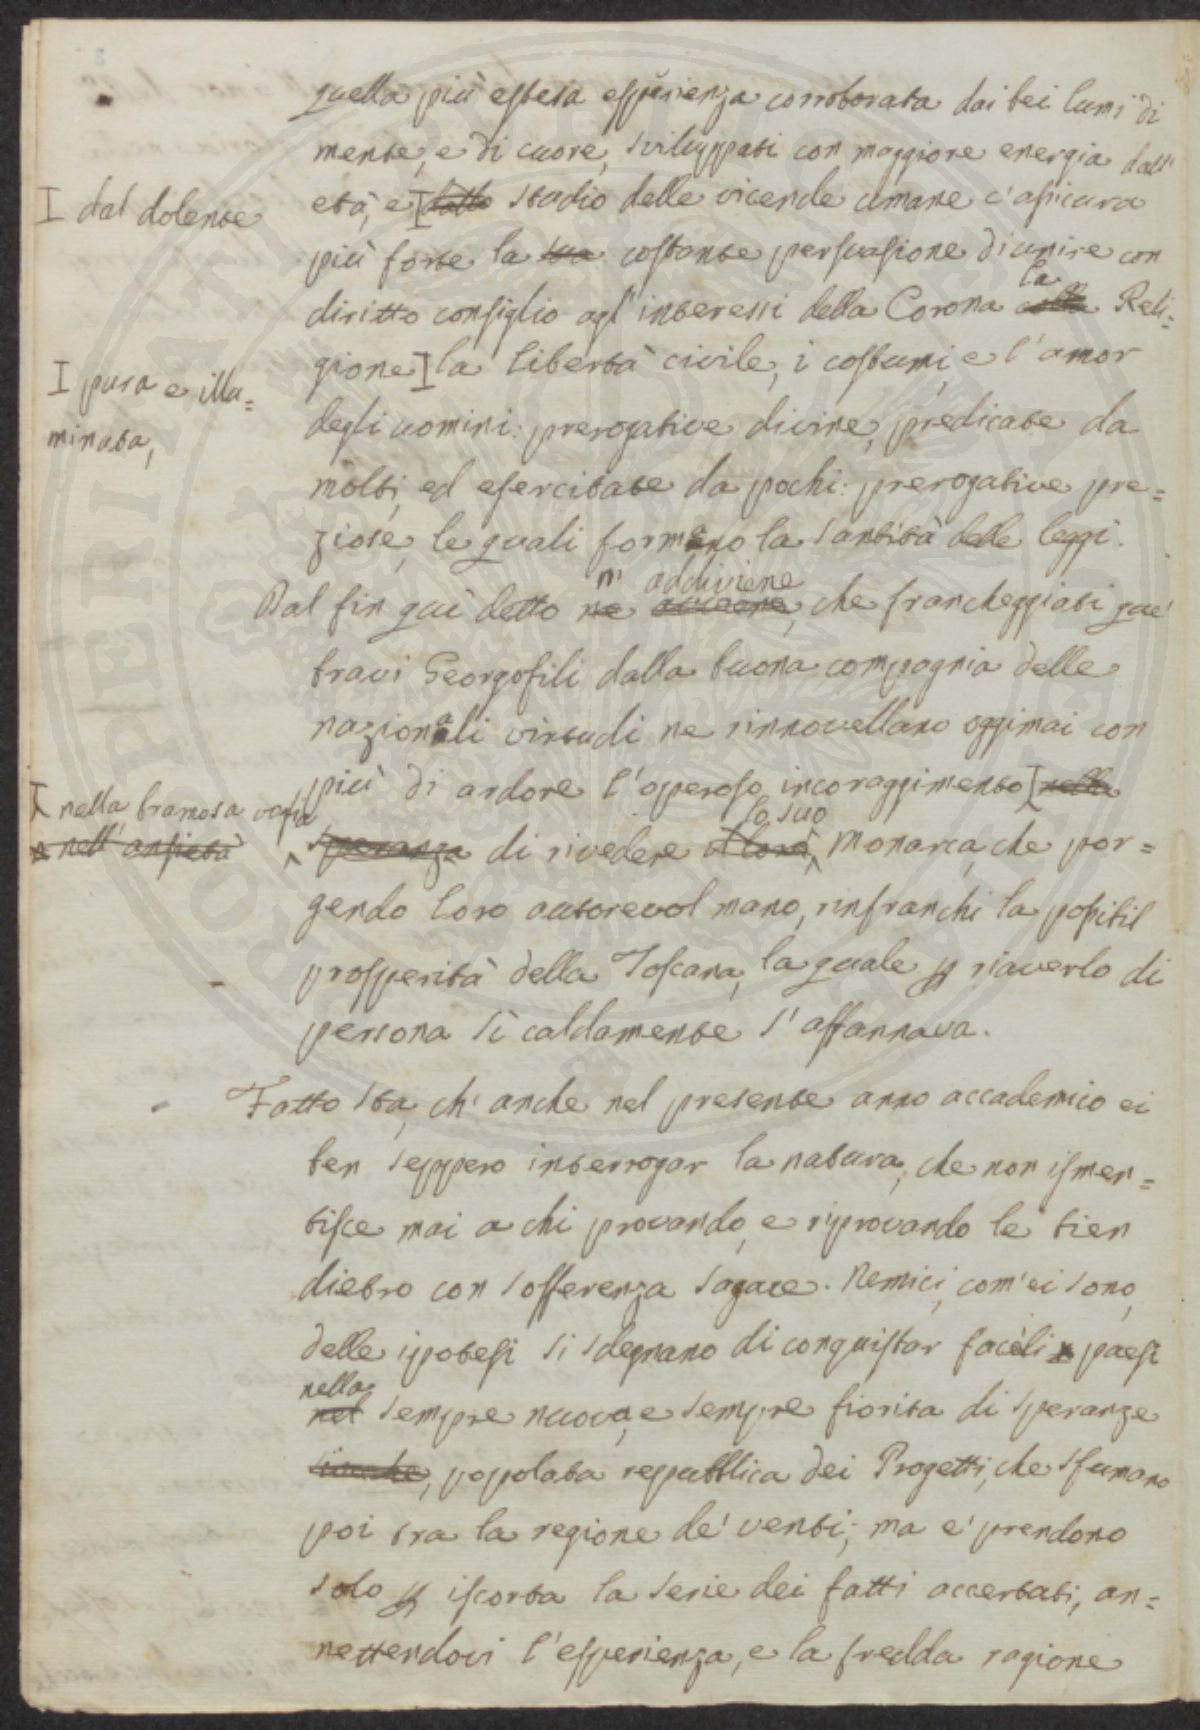 quella più estesa esperienza corroborata dai bei lumi di
mente, e di cuore, sviluppati con maggiore energia dall'
I dal dolente
età, e I dallo studio delle vicende umane c'assicura
più forte la sua costante persuasione di unire con
diritto consiglio agl'interessi della Corona la colla Reli=
gione I la libertà civile, i costumi, e l'amor
I pura e illu=
minata,
degli uomini: prerogative divine, predicate da
molti, ed esercitate da pochi: prerogative pre=
ziose, le quali formano la santità delle leggi.
Dal fin quì detto ne n' addiviene avviene, che francheggiati que'
bravi Georgofili dalla buona compagnia delle
nazionali virtudi ne rinnovellano oggimai con
più di ardore l'operoso incoraggimento I nella
I nella bramosa
nell'ansietà
speranza di rivedere lo suo Monarca, che por=
gendo loro autorevol mano, rinfranchi la possibil
prosperità della Toscana, la quale p riaverlo di
persona sì caldamente s'affannava.
Fatto sta, ch'anche nel presente anno accademico ei
ben seppero interrogar la natura, che non ismen=
tisce mai a chi provando, e riprovando le tien
dietro con sofferenza sagace. Nemici, com'ei sono,
delle ipotesi si sdegnano di conquistar facili paesi
nella
nel sempre nuova, e sempre fiorita di speranze
popolata repubblica dei Progetti, che sfumano
poi tra la regione de' venti; ma e' prendono
solo p iscorta la serie dei fatti accertati, an=
nettendovi l'esperienza, e la fredda ragione